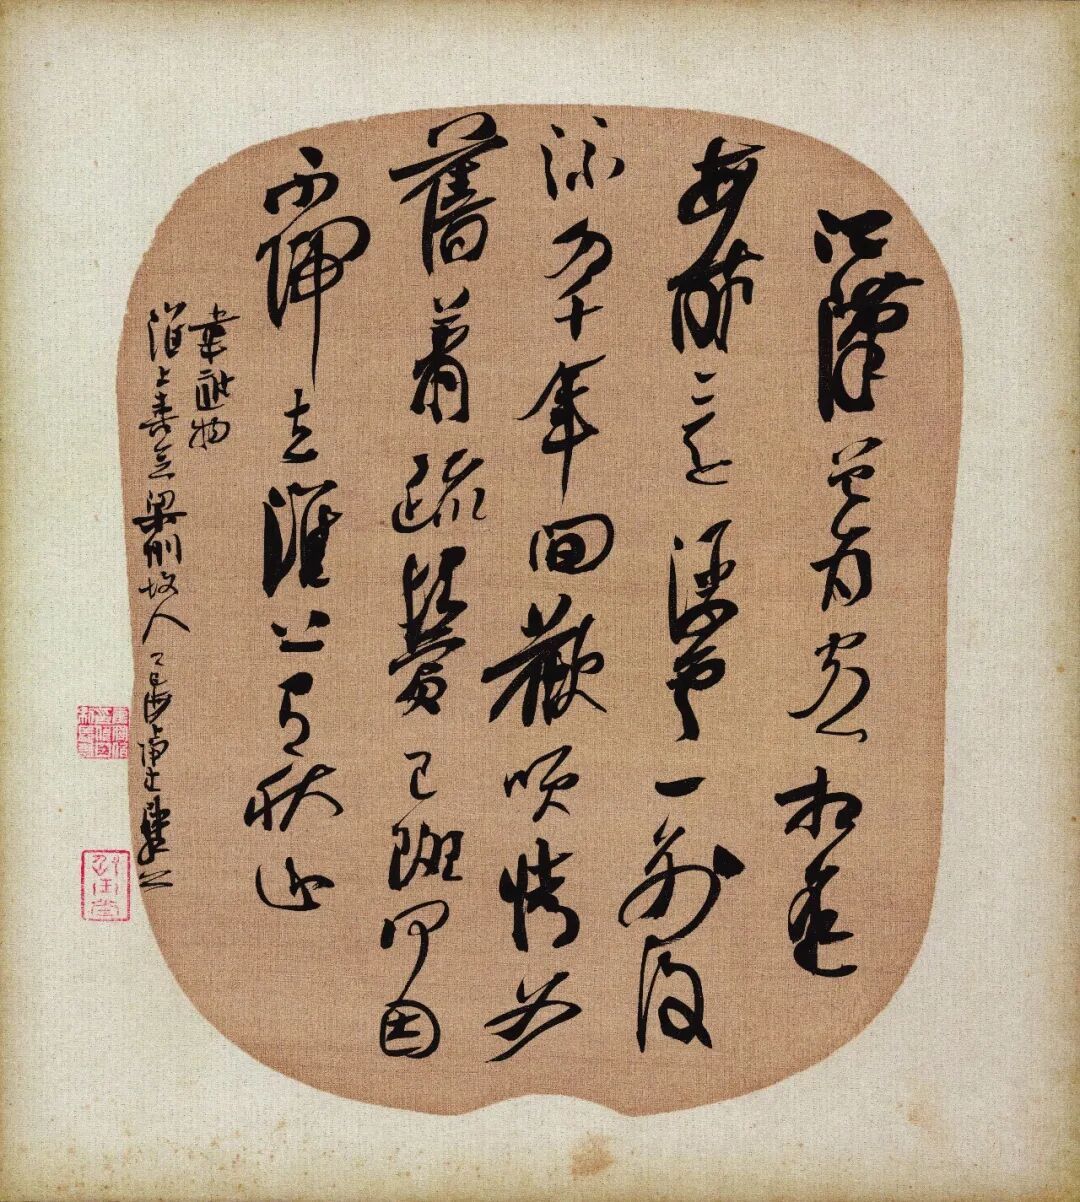 江漢曾為客相逢
每醉還浮雲一別後
流水十年間歡笑情如
舊蕭疏鬢已斑何因
不歸去淮上有秋山
韋應物
淮上喜會梁州故人